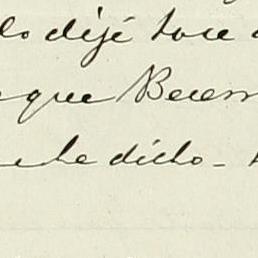 lo dijé tuve
que Becerr
he dicho -